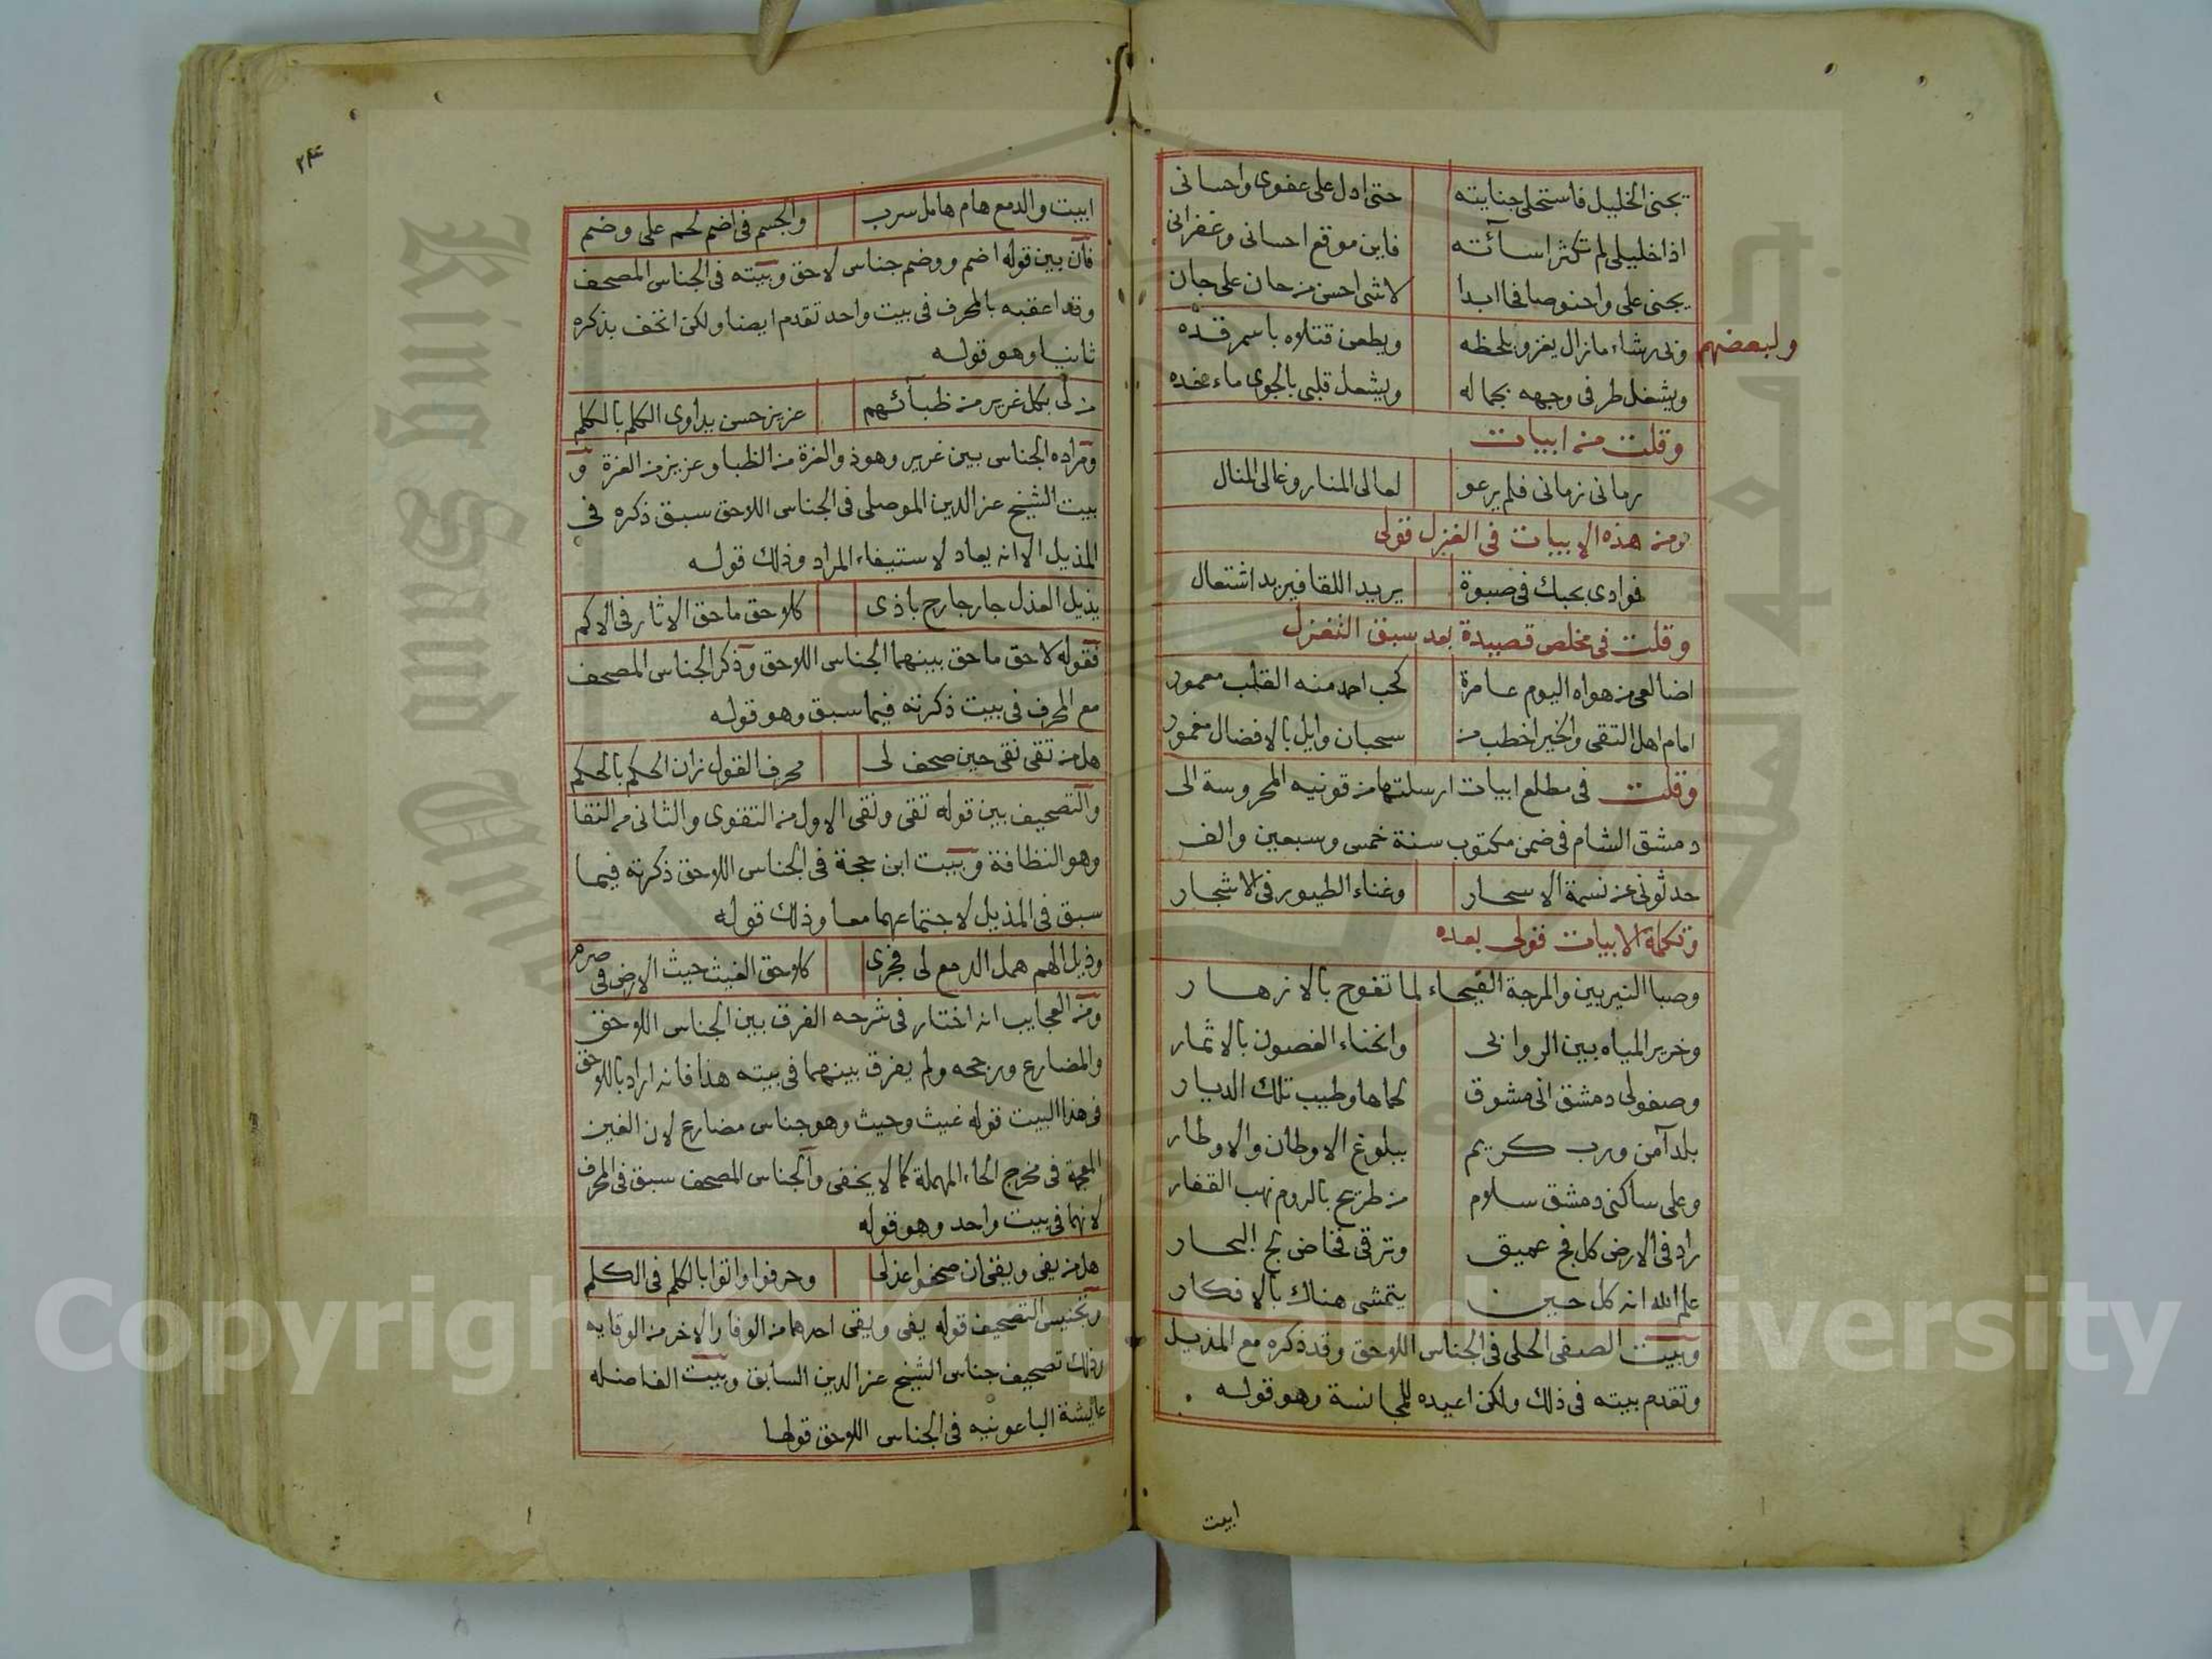 يجنى الخليل فاستحلى جنايته حتى ادل على عفوى واحسانى
اذا خليلى لم تكثر اسآئته فاين موقع احسانى وغفرانى
يجنى على واحنو صافحا ابدا لا شى احسن من حان على جان
ولبعضهم
وبى رشاء ما زال يغزو بلحظه ويطعن قتلاه باسمر قده
ويشغل طرفى وجهه بجماله ويشعل قلبى بالجوى ماء خده
وقلت من ابيات
رمانى زمانى فلم يرعو لعالى المنار وغالى المنال
ومن هذه الابيات فى الغزل قولى
فوادى بحبك فى صبوة يريد اللقا فيزيد اشتعال
وقلت فى مخلص قصيدة بعد سبق التغزل
اضالعى من هواه اليوم عامرة كحب احمد منه القلب معمور
امام اهل التقى والخير اخطب من سحبان وايل بالافضال مغمور
وقلت فى مطلع ابيات ارسلتها من قونيه المحروسة الى
دمشق الشام فى ضمن مكتوب سنة خمس وسبعين والف
حدثونى عن نسمة الاسحار وغناء الطيور فى الاشجار
وتكملة الابيات قولى بعده
وصبا النيربين والمرجة الفيحاء لما تفوح بالازهار
وخرير المياه بين الروابى وانحناء الغصون بالاثمار
وصفولى دمشق انى مشوق لحماها وطيب تلك الديار
بلد آمن ورب كريم ببلوغ الاوطان والاوطار
وعلى ساكنى دمشق سلام من طريح بالروم نهب القفار
راد فى الارض كل فج عميق وترقى فخاض لج البحار
علم الله انه كل حين يتمشى هناك بالافكار
وبيت الصفى الحلى فى الجناس اللاحق وقد ذكره مع المذيل
وتقدم بيته فى ذلك ولكن اعيده للمجانسة وهو قوله
ابيت
٢٤٤
ابيت والدمع هام هامل سرب والجسم فى اضم لحم على وضم
فان بين قوله اضم ووضم جناس لاحق وبيته فى الجناس المصحف
وقد اعقبه بالمحرف فى بيت واحد تقدم ايضا ولكن اتحف بذكره
ثانيا وهو قوله
من لى بكل غرير من ظبآئهم عزيز حسن يداوى الكلم بالكلم
ومراده الجناس بين غرير وهو ذو الغرة من الظبا وعزيز من العزة و
بيت الشيخ عز الدين الموصلى فى الجناس اللاحق سبق ذكره فى
المذيل الا انه يعاد لاستيفاء المراد وذلك قوله
يذيل العذل جار جارح باذى كلاحق ماحق الاثار فى الاكم
فقوله لاحق ماحق بينهما الجناس اللاحق وذكر الجناس المصحف
مع المحرف فى بيت ذكرته فيما سبق وهو قوله
هل من تقى نقى حين صحف لى محرف القول زان الحكم بالحكم
والتصحيف بين قوله تقى ونقى الاول من التقوى والثانى من النقا
وهو النظافة وبيت ابن حجة فى الجناس اللاحق ذكرته فيما
سبق فى المذيل لاجتماعهما معا وذلك قوله
وذيل الهم همل الدمع لى فجرى كلاحق الغيث حيث الارض فى ضرم
ومن العجايب انه اختار فى شرحه الفرق بين الجناس اللاحق
والمضارع ورجحه ولم يفرق بينهما فى بيته هذا فانه اراد باللاحق
فى هذا البيت قوله غيث وحيث وهو جناس مضارع لان الغين
المعجمة فى مخرج الحاء المهملة كما لا يخفى والجناس المصحف سبق فى المحرف
لانهما فى بيت واحد وهو قوله
هل من يفى ويقى ان صحفوا عذلى وحرفوا واتوا بالكلم فى الكلم
وتجنيس التصحيف قوله يفى ويقى احدهما من الوفا والاخر من الوقايه
وذلك تصحيف جناس الشيخ عز الدين السابق وبيت الفاضله
عايشة الباعونيه فى الجناس اللاحق قولها
Copyright © King Saud University
King Saud University